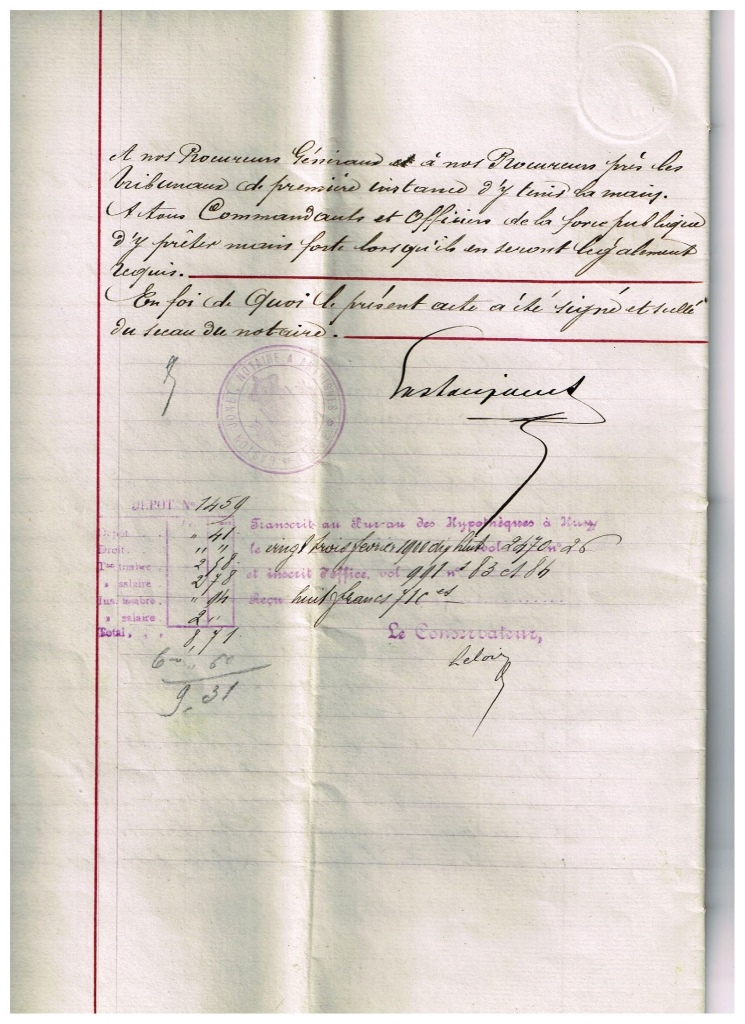 A nos Procureurs Généraux et à nos Procureurs près les
tribunaux de première instance d'y tenir la main.
A tous Commandants et Officiers de la force publique
d'y prêter main forte lorsqu'ils en seront légalement
requis.
En foi de Quoi le présent acte a été signé et scellé
du sceau du notaire.
GASTON JONET NOTAIRE A
DEPOT No 1459
Transcrit au Bureau des Hypothèques à Huy
le vingt trois février 1900 dix huit vol. 2470 no 26
et inscrit d'office, vol 991 ns 83 et 84
Reçu huit francs 71 Ces
Dépot . . " 41
Droit . . " "
Tre timbre . 2 68
" salaire 2 78
Ins. timbre . " 84
" salaire . 2 "
Total . . . 8,71
Le Conservateur,
60
9,31